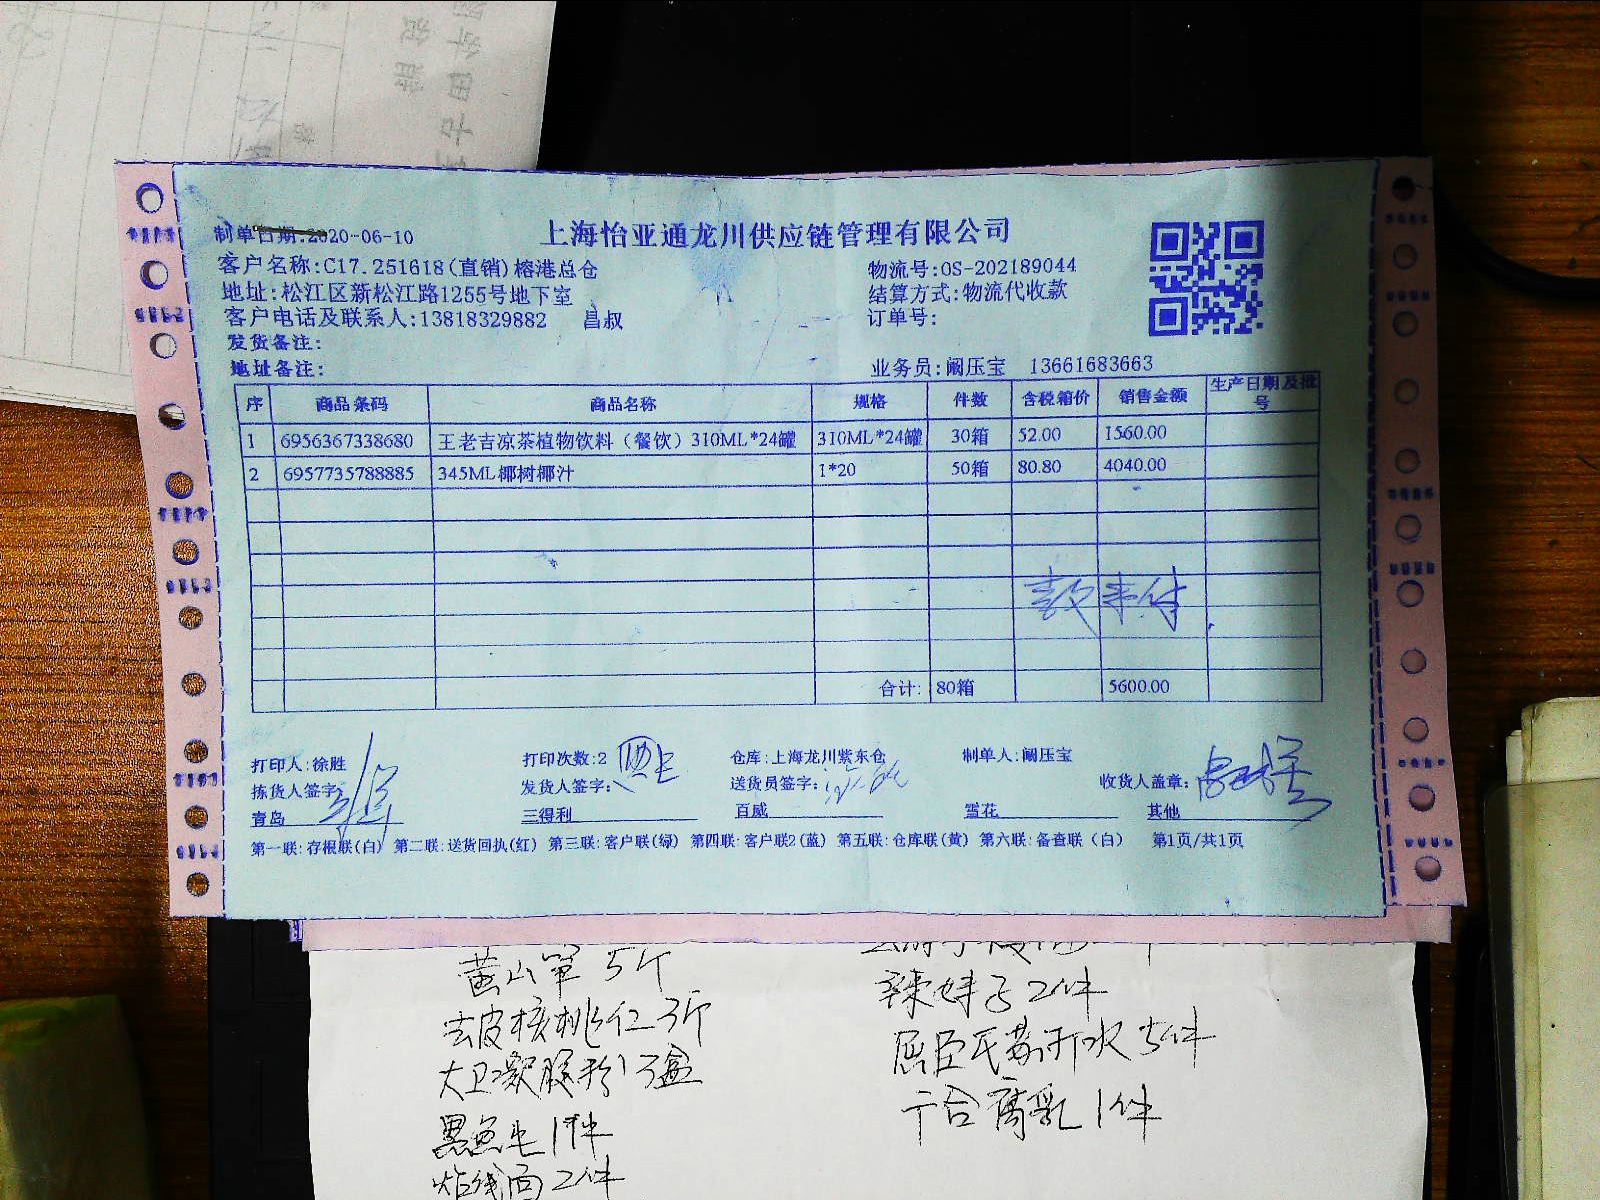 上海怡亚通龙川供应链管理有限公司
制单日期:2020-06-10
客户名称:C17.251618(直销)榕港总仓
物流号:OS-202189044
地址:松江区新松江路1255号地下室
结算方式:物流代收款
客户电话及联系人:13818329882 昌叔
订单号:
发货备注:
地址备注:
业务员:阚压宝 13661683663
序 商品条码 商品名称 规格 件数 含税箱价 销售金额 生产日期及批号
1 6956367338680 王老吉凉茶植物饮料（餐饮）310ML*24罐 310ML*24罐 30箱 52.00 1560.00
2 6957735788885 345ML椰树椰汁 1*20 50箱 80.80 4040.00
款未付
合计: 80箱 5600.00
打印人:徐胜 打印次数:2 仓库:上海龙川紫东仓 制单人:阚压宝
拣货人签字: 发货人签字: 送货员签字: 收货人盖章:
青岛 三得利 百威 雪花 其他
第一联:存根联(白) 第二联:送货回执(红) 第三联:客户联(绿) 第四联:客户联2(蓝) 第五联:仓库联(黄) 第六联:备查联（白） 第1页/共1页
黄山笋 5斤
去皮核桃仁 3斤
大卫凝胶粉 3盒
辣妹子 2件
1件
2件